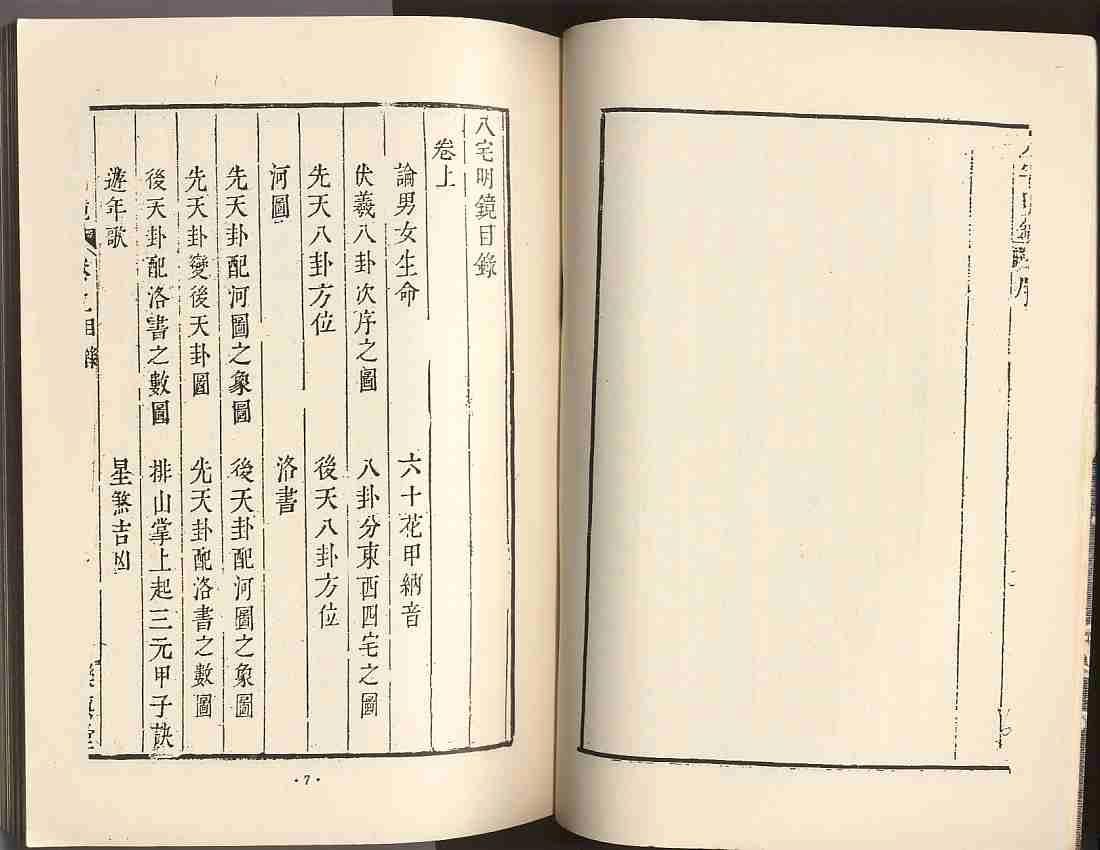 八宅明鏡目錄
卷上
論男女生命
六十花甲納音
伏羲八卦次序之圖
八卦分東西四宅之圖
先天八卦方位
後天八卦方位
河圖
洛書
先天卦配河圖之象圖
後天卦配河圖之象圖
先天卦變後天卦圖
先天卦配洛書之數圖
後天卦配洛書之數圖
排山掌上起三元甲子訣
遊年歌
星煞吉凶
·7·